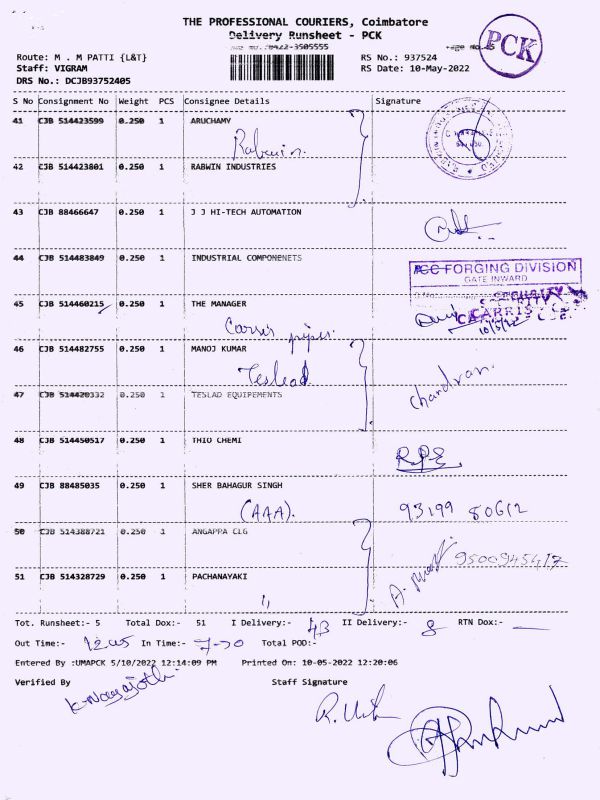 THE PROFESSIONAL COURIERS, Coimbatore
Delivery Runsheet - PCK
0422-3505555
PCK
Route: M . M PATTI {L&T}
Staff: VIGRAM
DRS No.: DCJB93752405
RS No.: 937524
RS Date: 10-May-2022
S No Consignment No Weight PCS Consignee Details Signature
41 CJB 514423599 0.250 1 ARUCHAMY
Rabwin
42 CJB 514423801 0.250 1 RABWIN INDUSTRIES
43 CJB 88466647 0.250 1 J J HI-TECH AUTOMATION
44 CJB 514483849 0.250 1 INDUSTRIAL COMPONENETS
FORGING DIVISION
GATE INWARD
45 CJB 514460215 0.250 1 THE MANAGER
SECURITY
CARRIS
10/5/22
Carris pipes.
46 CJB 514482755 0.250 1 MANOJ KUMAR
Teslead
chandran.
47 CJB 514420332 0.250 1 TESLAD EQUIPEMENTS
48 CJB 514450517 0.250 1 THIO CHEMI
RPE
49 CJB 88485035 0.250 1 SHER BAHAGUR SINGH
(AAA).
93199 80612
50 CJB 514388721 0.250 1 ANGAPPA CLG
9500945417
51 CJB 514328729 0.250 1 PACHANAYAKI
Tot. Runsheet:- 5 Total Dox:- 51 I Delivery:- 43 II Delivery:- 8 RTN Dox:- —
Out Time:- 12.05 In Time:- 7-30 Total POD:-
Entered By :UMAPCK 5/10/2022 12:14:09 PM Printed On: 10-05-2022 12:20:06
Verified By Staff Signature